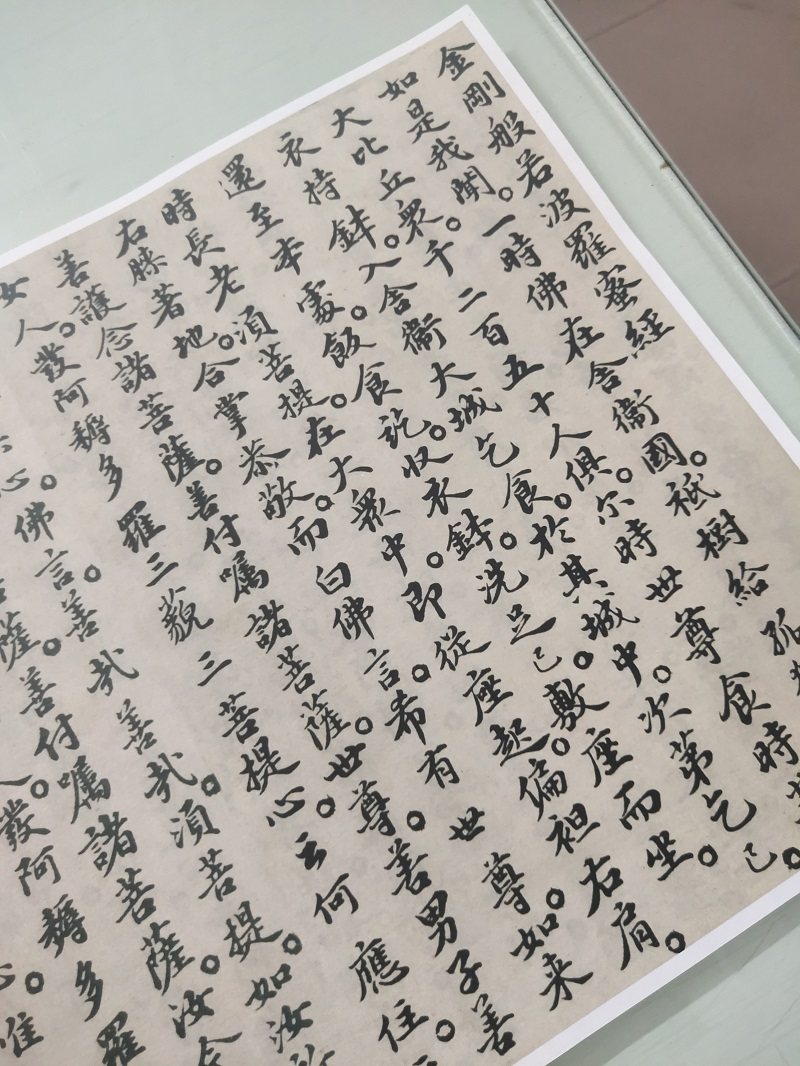 金剛般若波羅蜜經
如是我聞。一時佛在舍衞國。祇樹給孤
大比丘衆。千二百五十人俱。尒時世尊食時
衣持鉢。入舍衞大城乞食。於其城中。次第乞已。
還至本處。飯食訖収衣鉢。洗足已。敷座而坐。
時長老須菩提。在大衆中。即從座起。偏袒右肩。
右膝著地。合掌恭敬。而白佛言。希有世尊。如来
善護念諸菩薩。善付囑諸菩薩。世尊。善男子善
女人。發阿耨多羅三藐三菩提心。云何應住。
心。佛言。善哉善哉。須菩提。如汝所
薩。善付囑諸菩薩。汝今
人。發阿耨多羅
心。唯